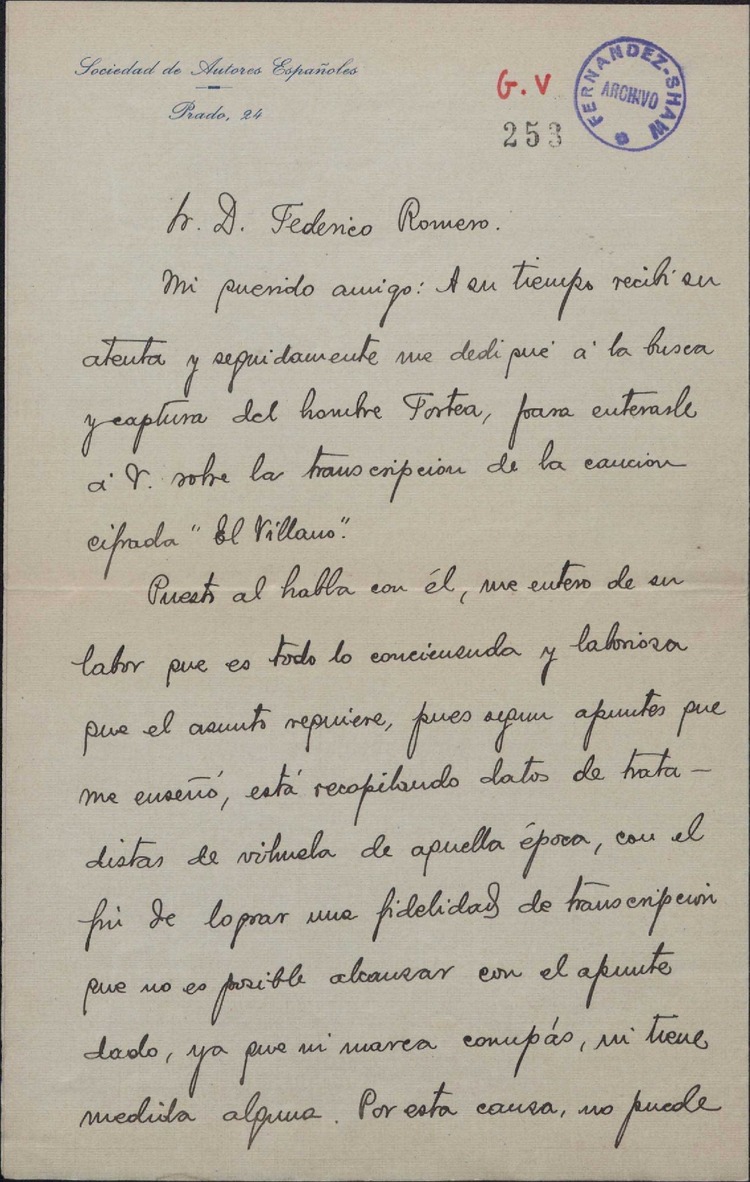 Sociedad de Autores Españoles
Prado, 24
G. V
253
FERNANDEZ-SHAW
ARCHIVO
Sr. D. Federico Romero.
Mi querido amigo: A su tiempo recibí su
atenta y seguidamente me dediqué á la busca
y captura del hombre Fortea, para enterarle
á V. sobre la transcripcion de la cancion
cifrada "El Villano".
Puesto al habla con él, me entero de su
labor que es todo lo concienzuda y laboriosa
que el asunto requiere, pues segun apuntes que
me enseñó, está recopilando datos de trata-
distas de vihuela de aquella época, con el
fin de lograr una fidelidad de transcripcion
que no es posible alcanzar con el apunte
dado, ya que ni marca compás, ni tiene
medida alguna. Por esta causa, no puede